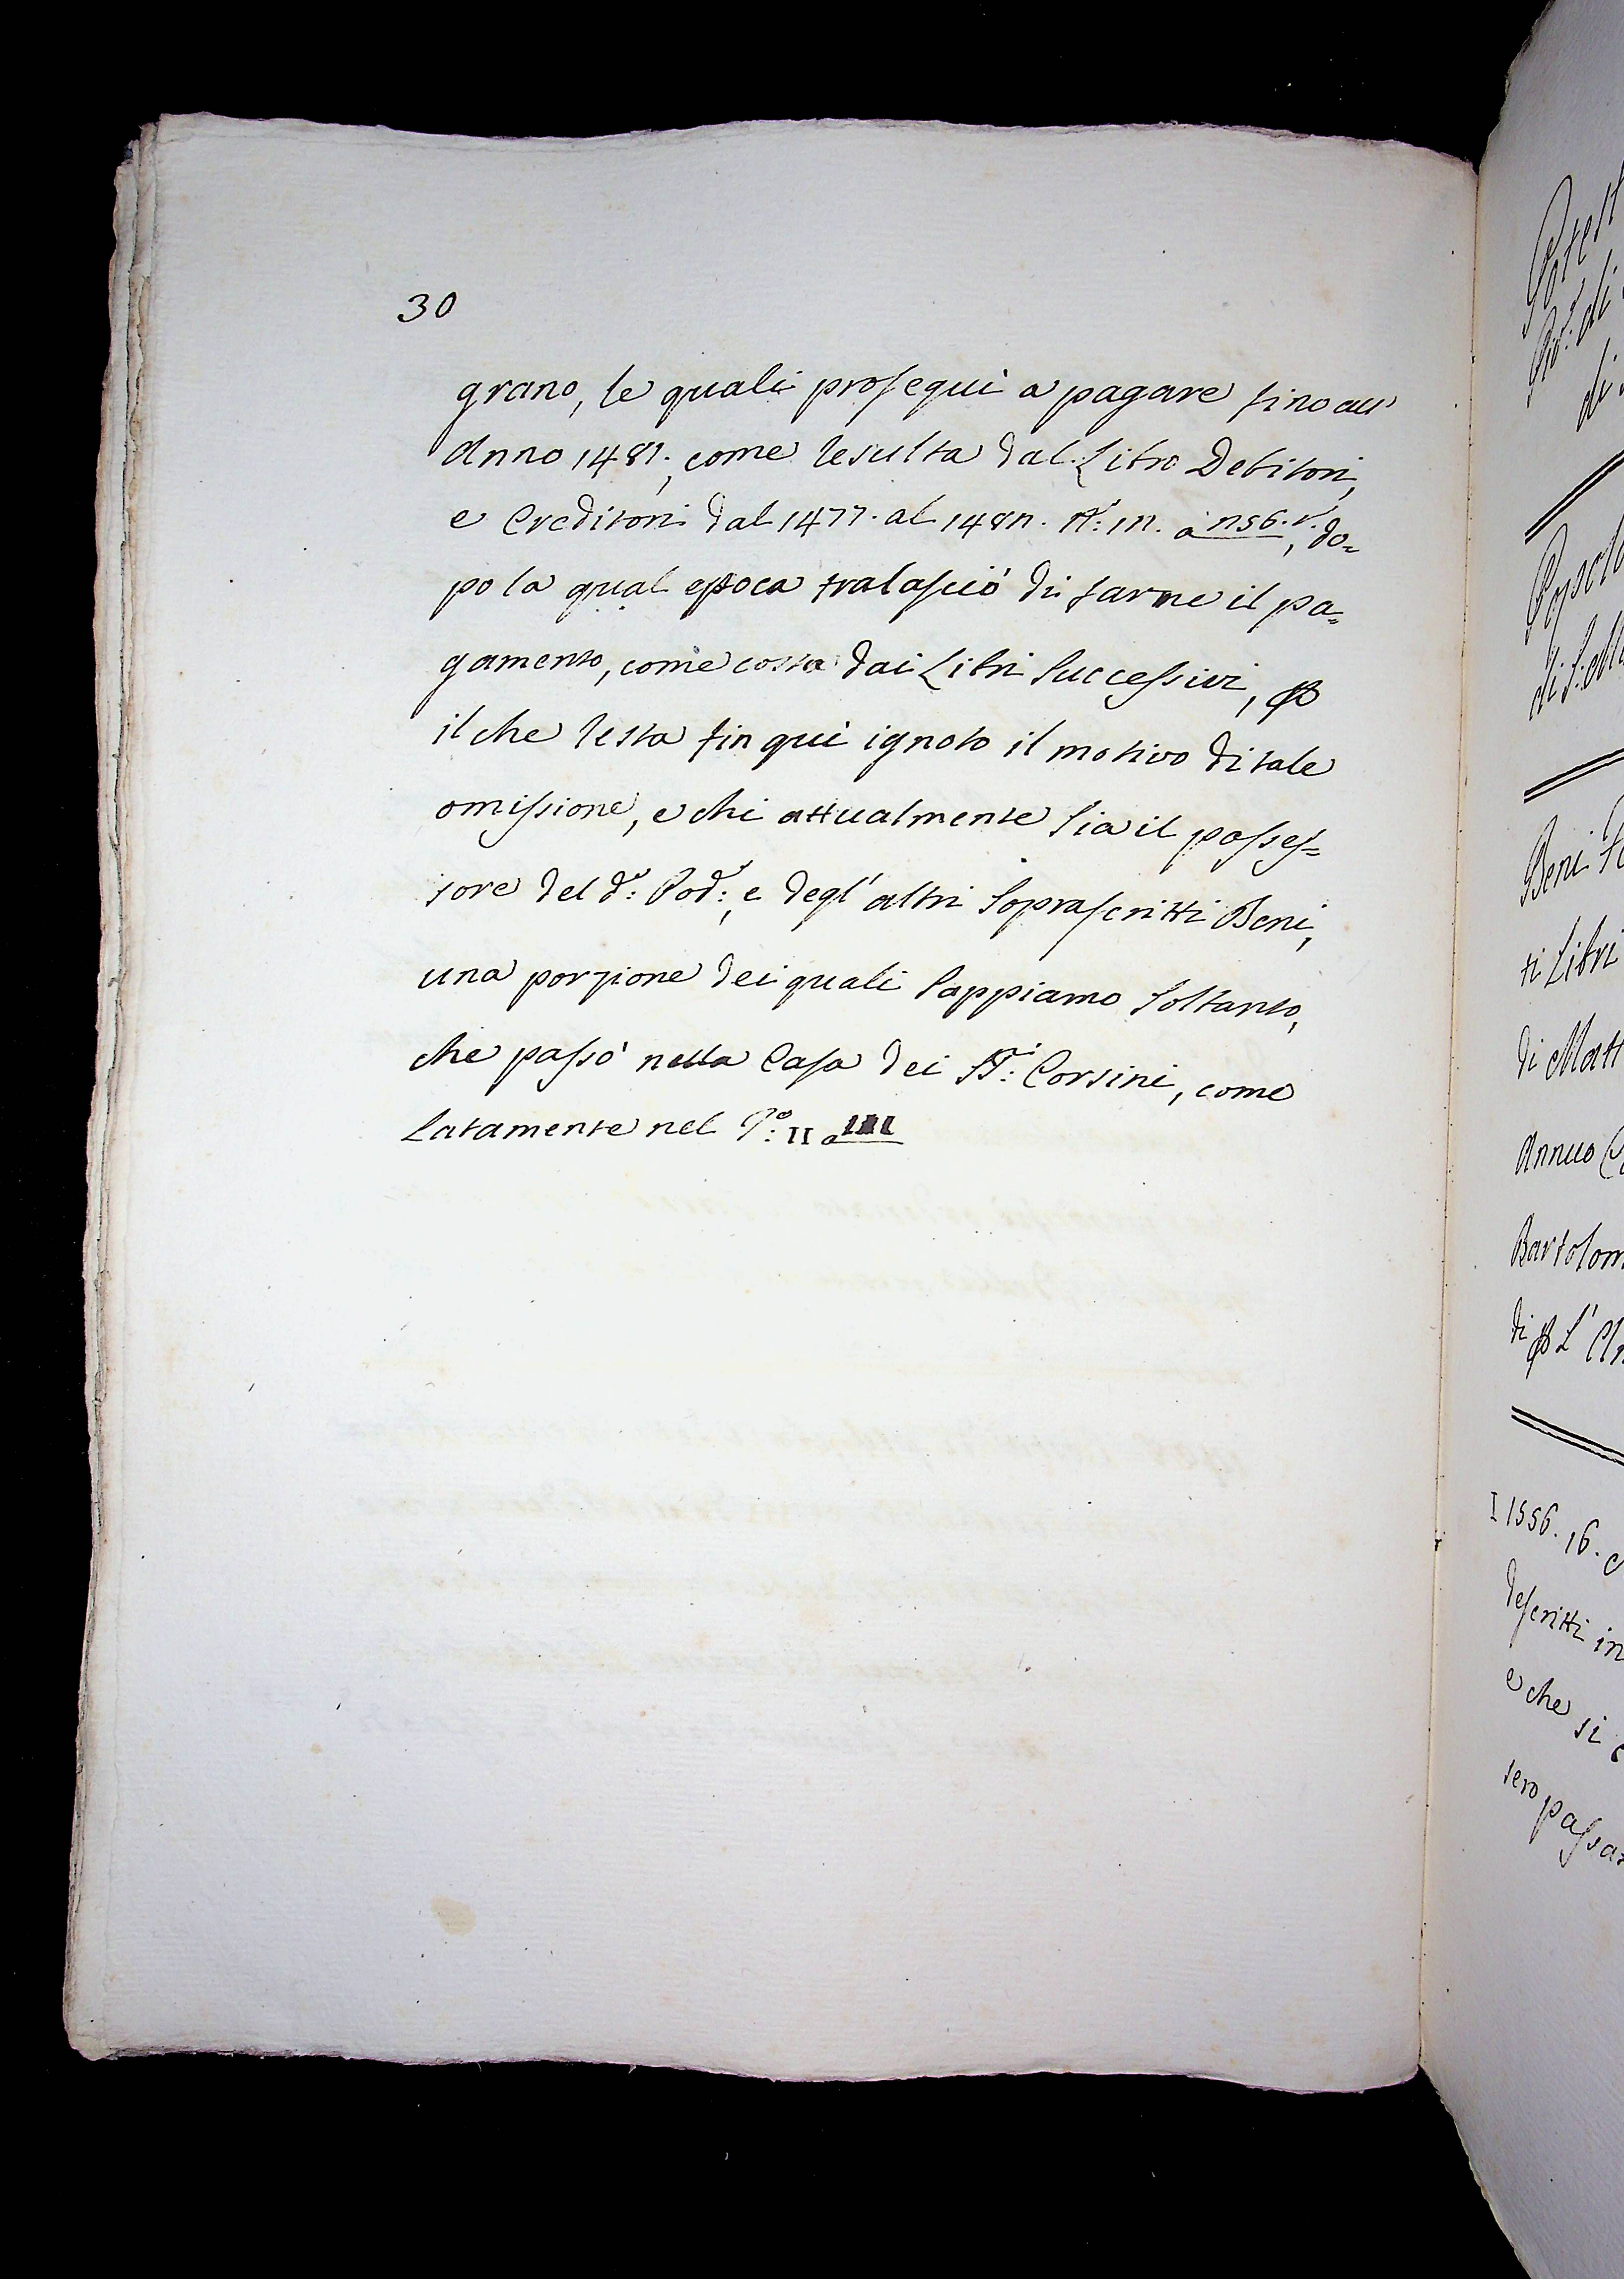 30
grano, le quali proseguì a pagare fino all'
Anno 1481., come resulta dal Libro Debitori,
e Creditori dal 1477. al
po la qual epoca tralasciò di farne il pa=
gamento, come costa dai Libri Successivi,
il che resta fin quì ignoto il motivo di tale
omissione, e chi attualmente Sia il posses=
sore del d.º: Pod.º:, e degl' altri Soprascritti Beni,
una porzione dei quali Sappiamo Soltanto,
che passò nella Casa dei SS.ʳⁱ: Corsini, come
Latamente nel T.º: II a III
Beni
ti Libri
di Matt
Annuo
Bartolom
I 1556. 16.
descritti in
e che si
sero passa